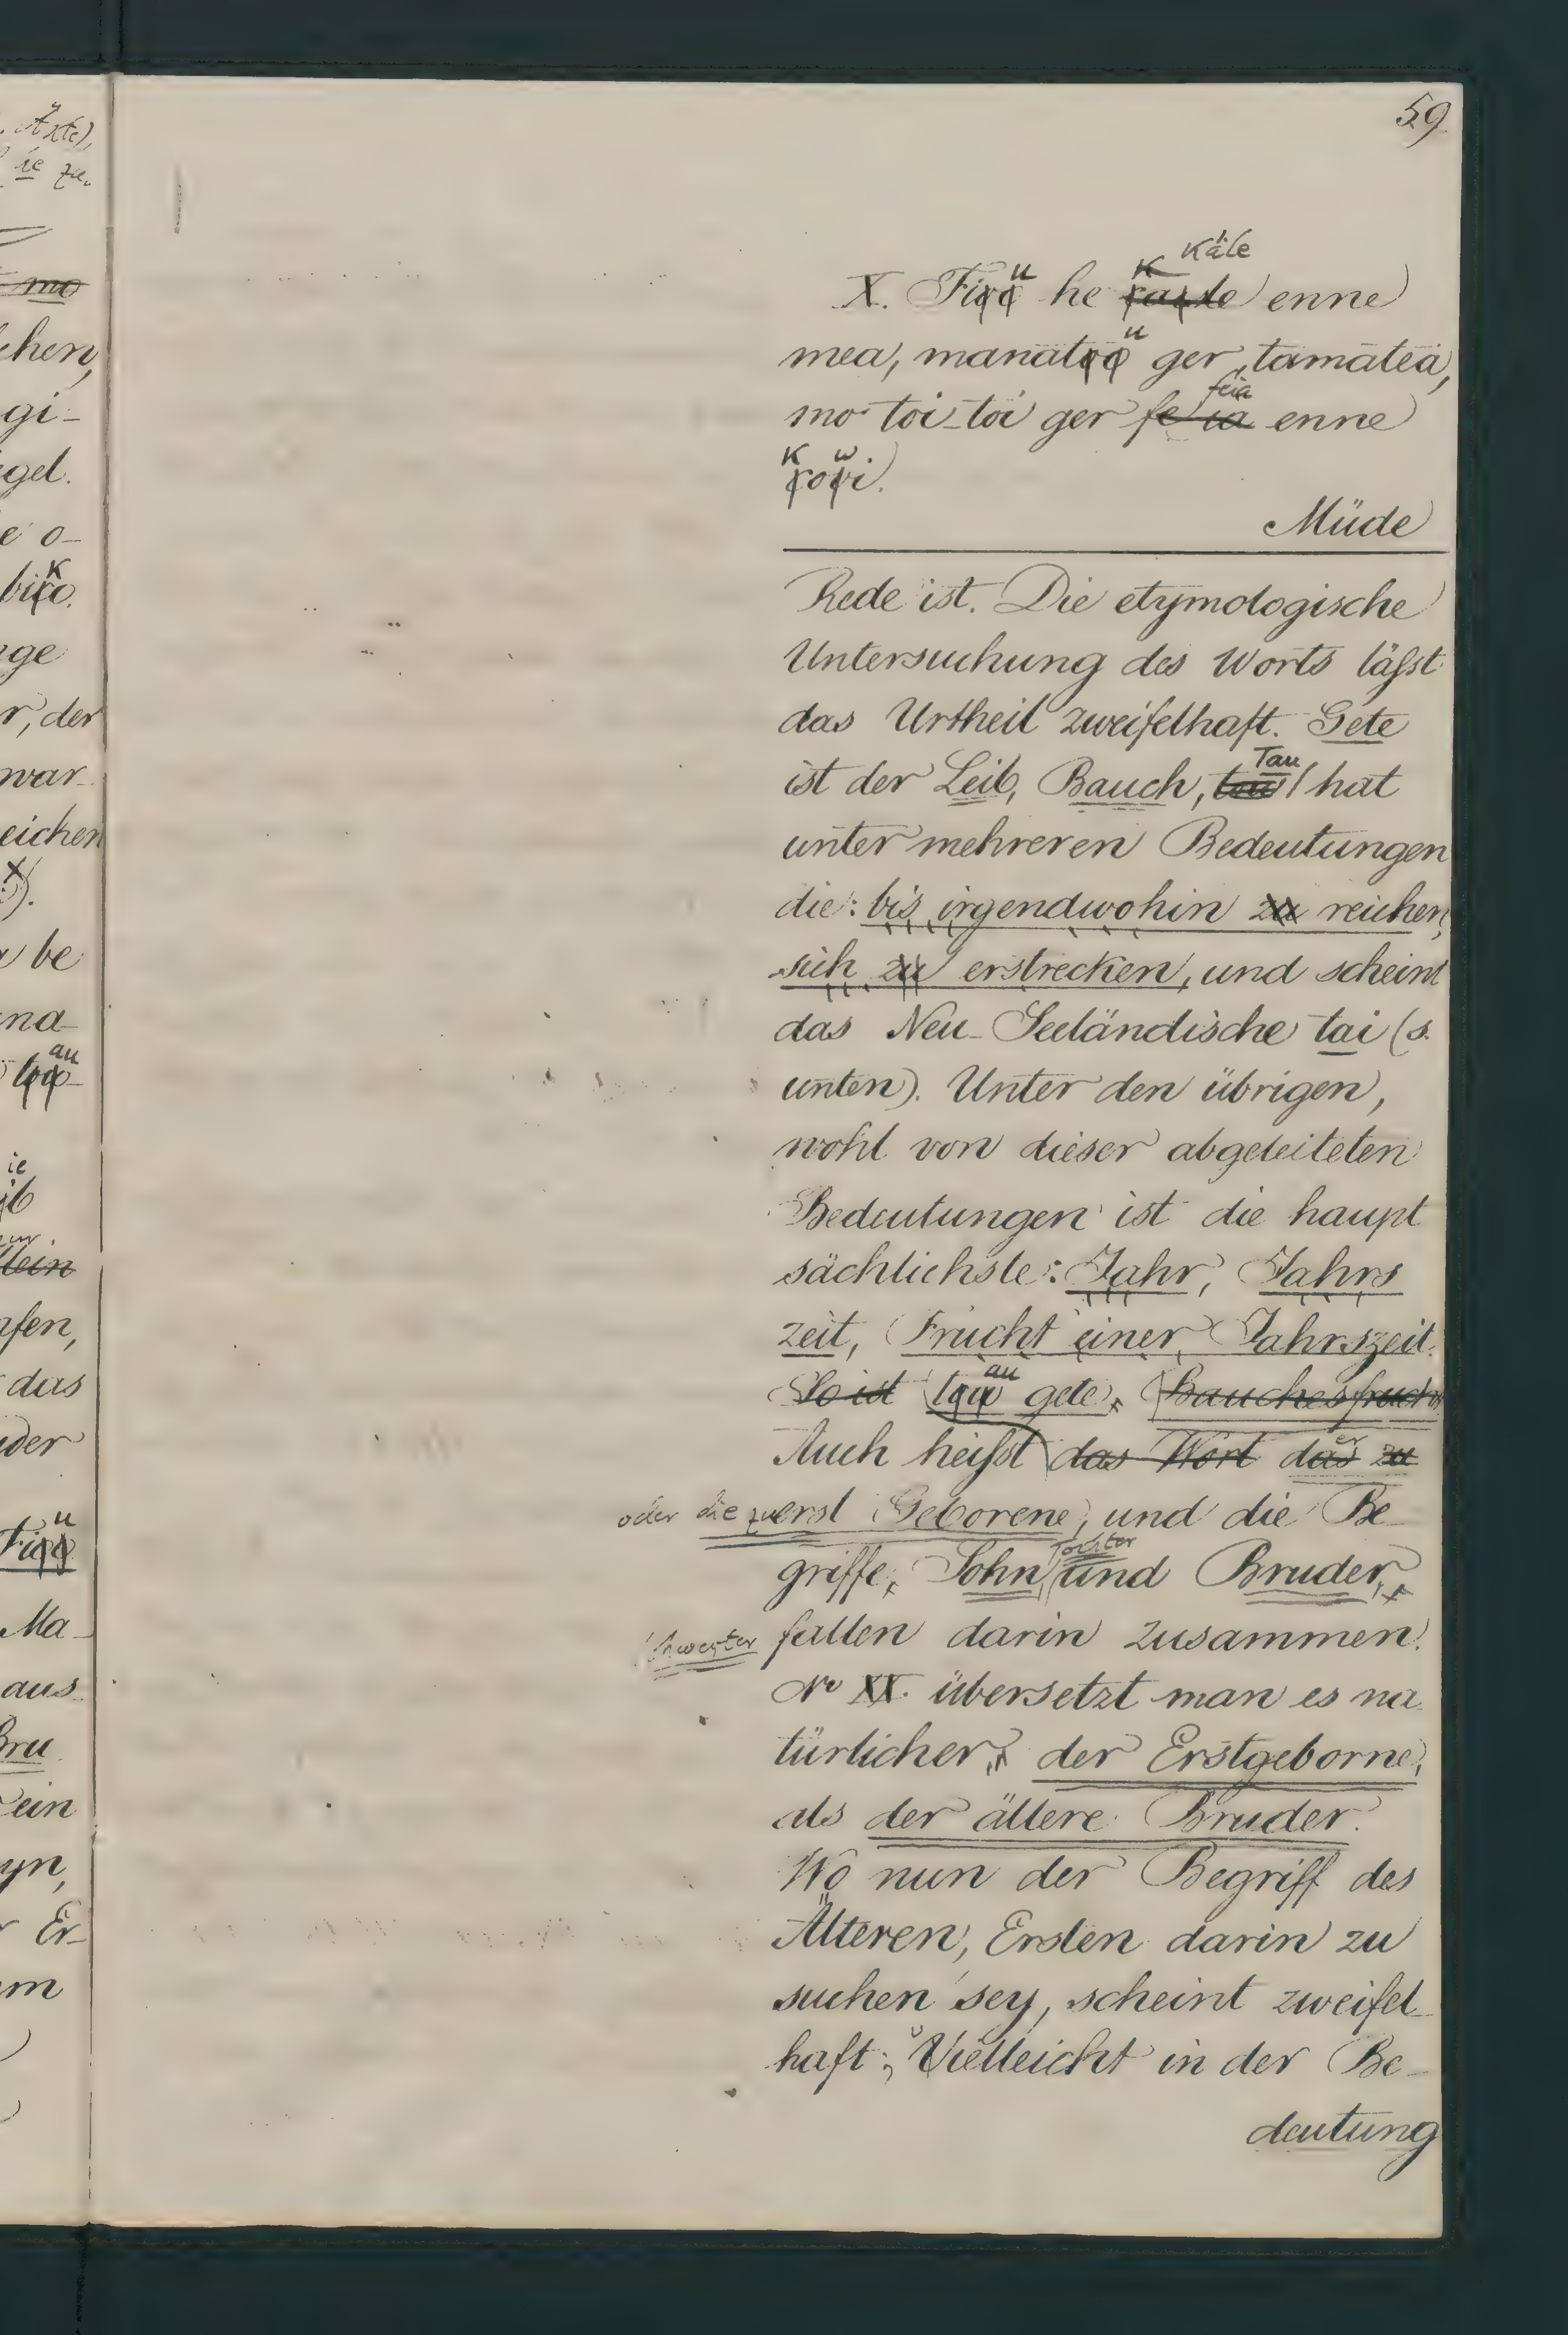 59
Käle
u K
X. Fiɤɤ he ɤaɤle enne
u
mea, manatɤɤ ger tamatea,
feia
mo toi-toi ger fe ia enne
K w
ɤoɤi.
Müde
Rede ist. Die etymologische
Untersuchung des Worts läſst
das Urtheil zweifelhaft. Gete
Tau
ist der Leib, Bauch, tau hat
unter mehreren Bedeutungen
die: bis irgendwohin zu reichen,
sich zu erstrecken, und scheint
das Neu-Seeländische tai (s.
unten). Unter den übrigen,
wohl von dieser abgeleiteten
Bedeutungen ist die haupt
sächlichste: Jahr, Jahrs
zeit, Frucht einer Jahrszeit.
au
So ist gete, Bauchesfrucht
er
Auch heiſst das Wort das zu
oder die zuerst Geborene, und die Be-
Tochter
griffe, Sohn, und Bruder,
Schwester fallen darin zusammen.
No XX. übersetzt man es na
türlicher, der Erstgeborne,
als der ältere Bruder.
Wo nun der Begriff des
Älteren, Ersten darin zu
suchen sey, scheint zweifel-
haft; Vielleicht in der Be-
deutung